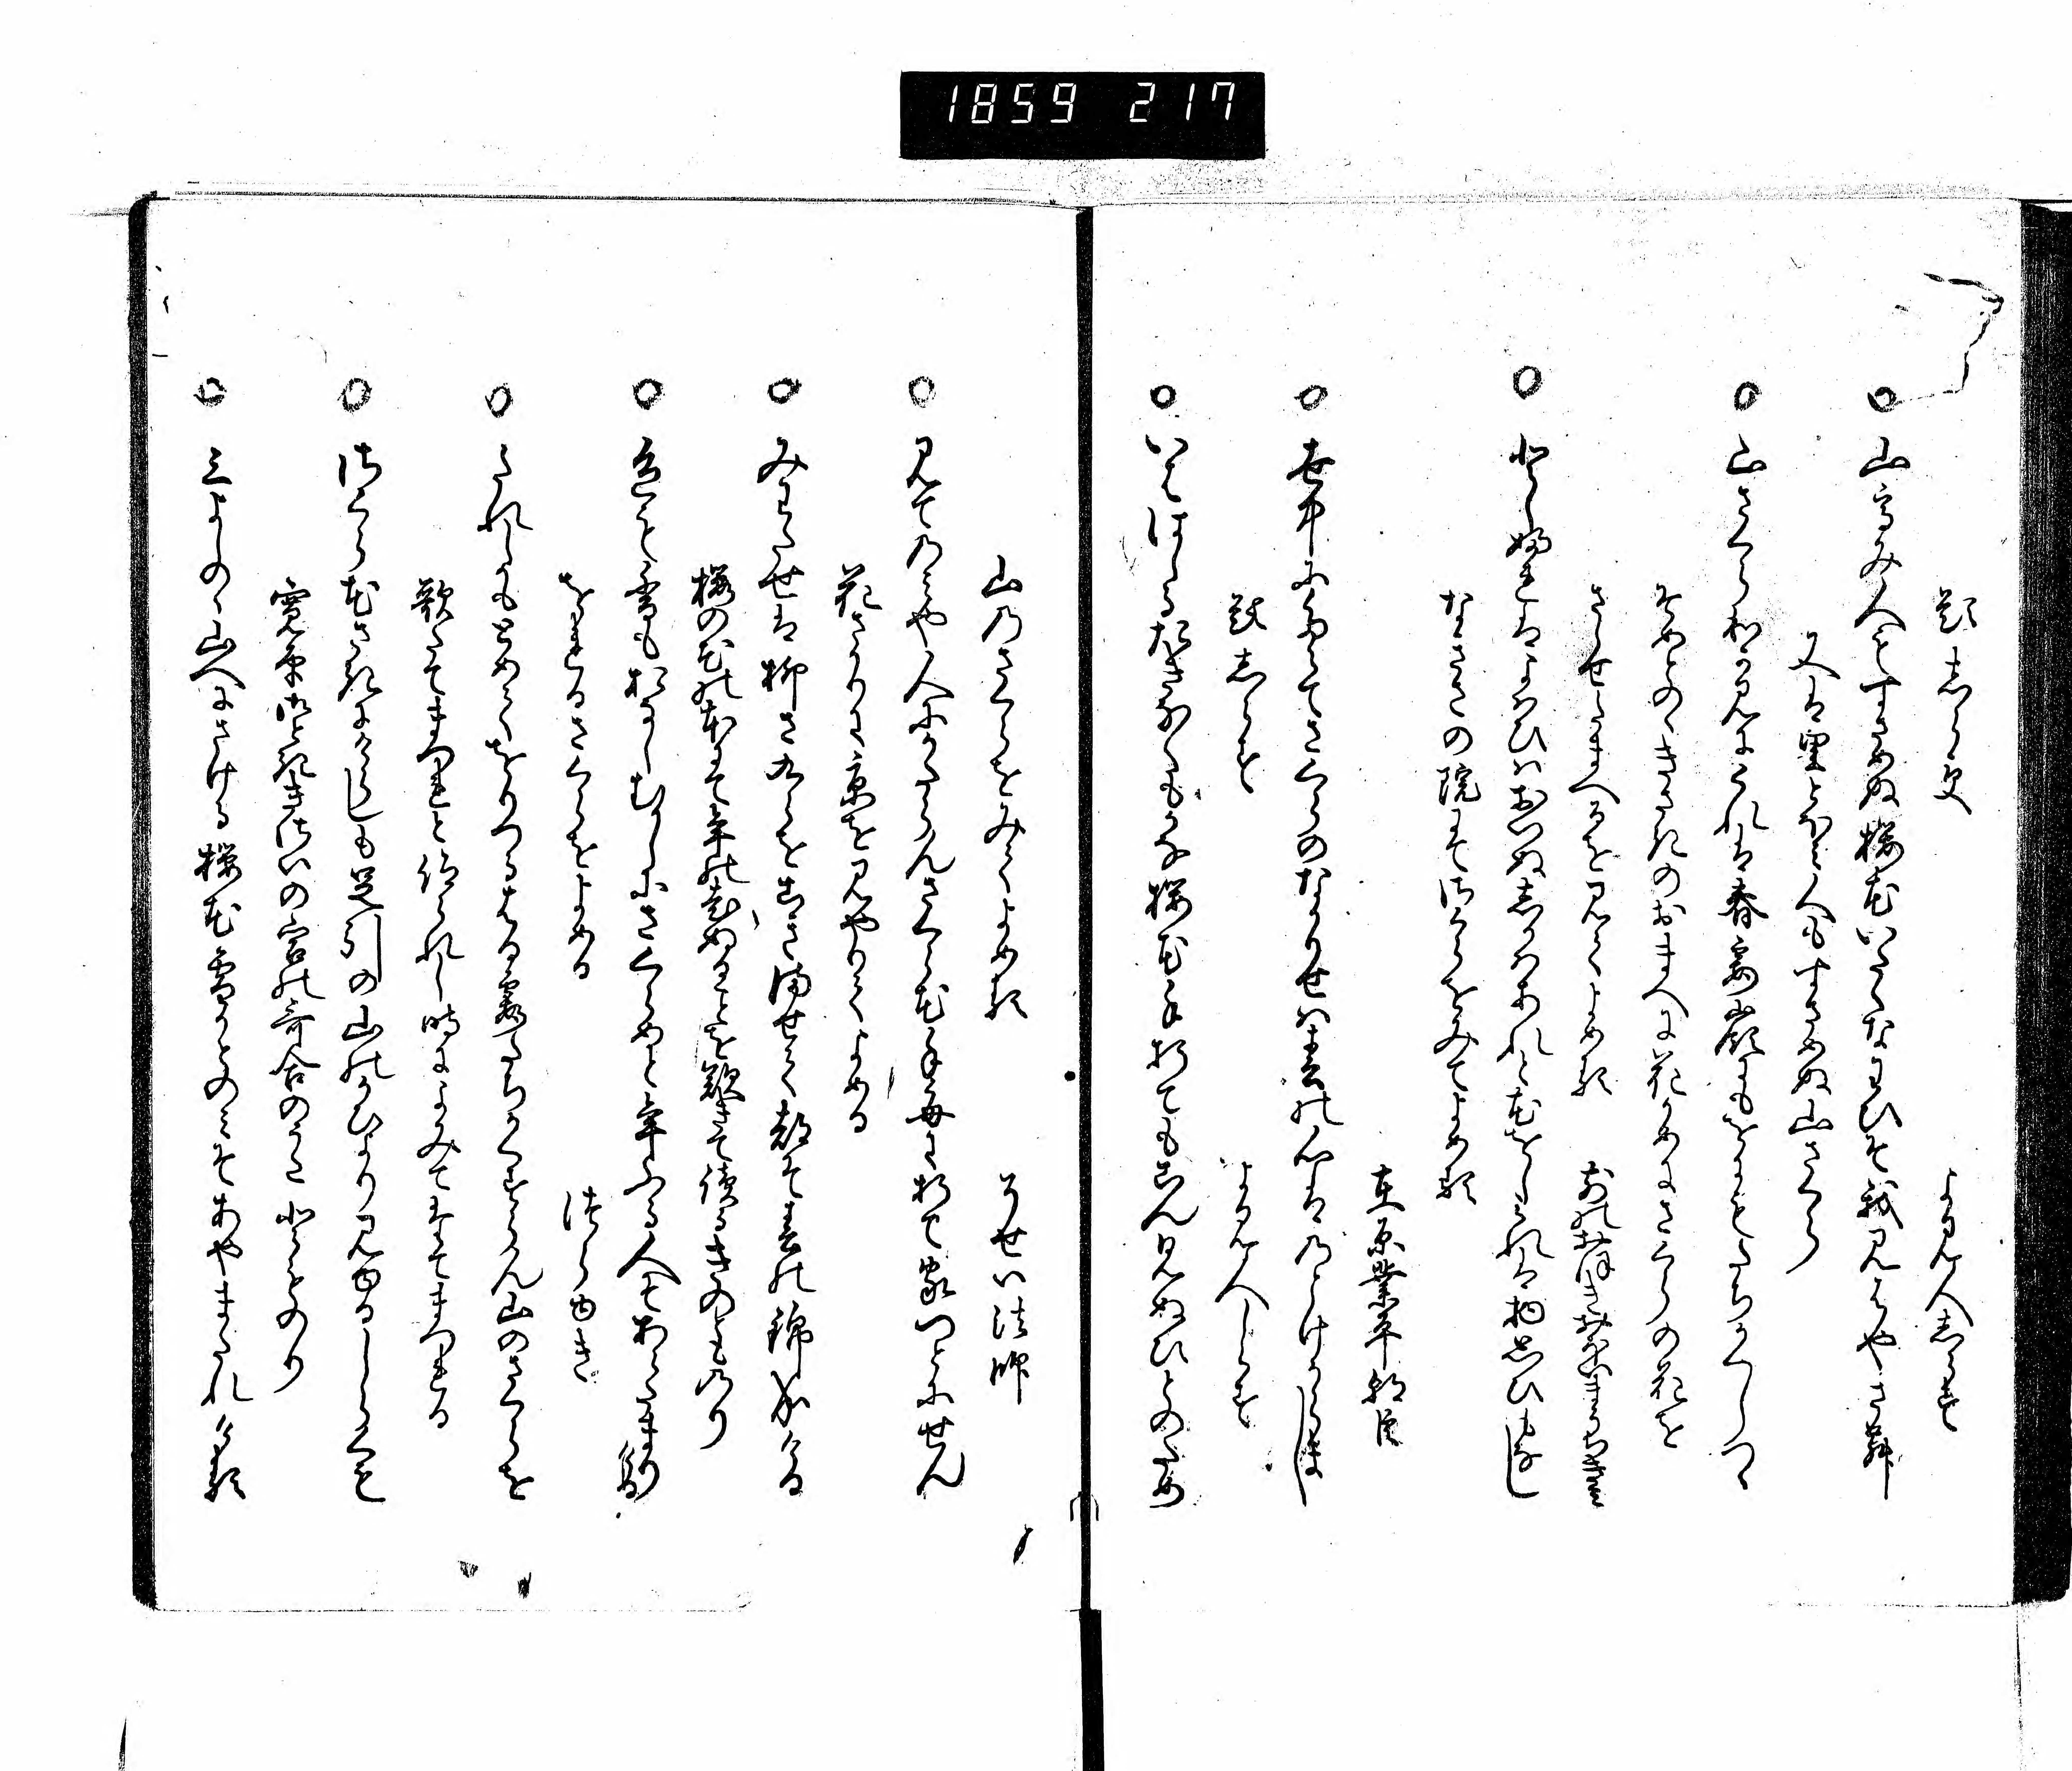 1859 217
題しらす　よみ人しらす
山高み人もすさめぬ桜花いたくなわひそ我見はやさん
又は里とをく人もすさめぬ山さくら
山さくらわか見にくれは春霞嶺にもをにもたちかくしつゝ
そめとのゝきさきのおまへに花かめにさくらの花を
さゝせたまへるを見てよめる　前のおほきおほいまうちきみ
年ふれはよはひは老ぬしかはあれと花をし見れは物思ひもなし
なきさの院にてさくらをみてよめる
在原業平朝臣
世中にたえてさくらのなかりせは春の心はのとけからまし
題しらす　よみ人しらす
いしはしるたきなくもかな桜花手折てもこん見ぬひとのため
山のさくらをみてよめる　そせい法師
見てのみや人にかたらんさくら花手毎に折て家つとにせん
花さかりに京を見やりてよめる
みわたせは柳さくらをこきませて都そ春の錦なりける
桜の花の本にて年の老ぬることを歎きて読るきのとものり
色も香もおなしむかしにさくらめと年ふる人そあらたまりける
をれるさくらをよめる　つらゆき
たれしかもとめてをりつるはる霞たちかくすらん山のさくらを
歌たてまつれと仰られし時によみてたてまつれる
さくら花さきにけらしも足引の山のかひより見ゆるしらくも
寛平御ときさいの宮の哥合のうた　とものり
三よしのゝ山へにさける桜花雪かとのみそあやまたれける